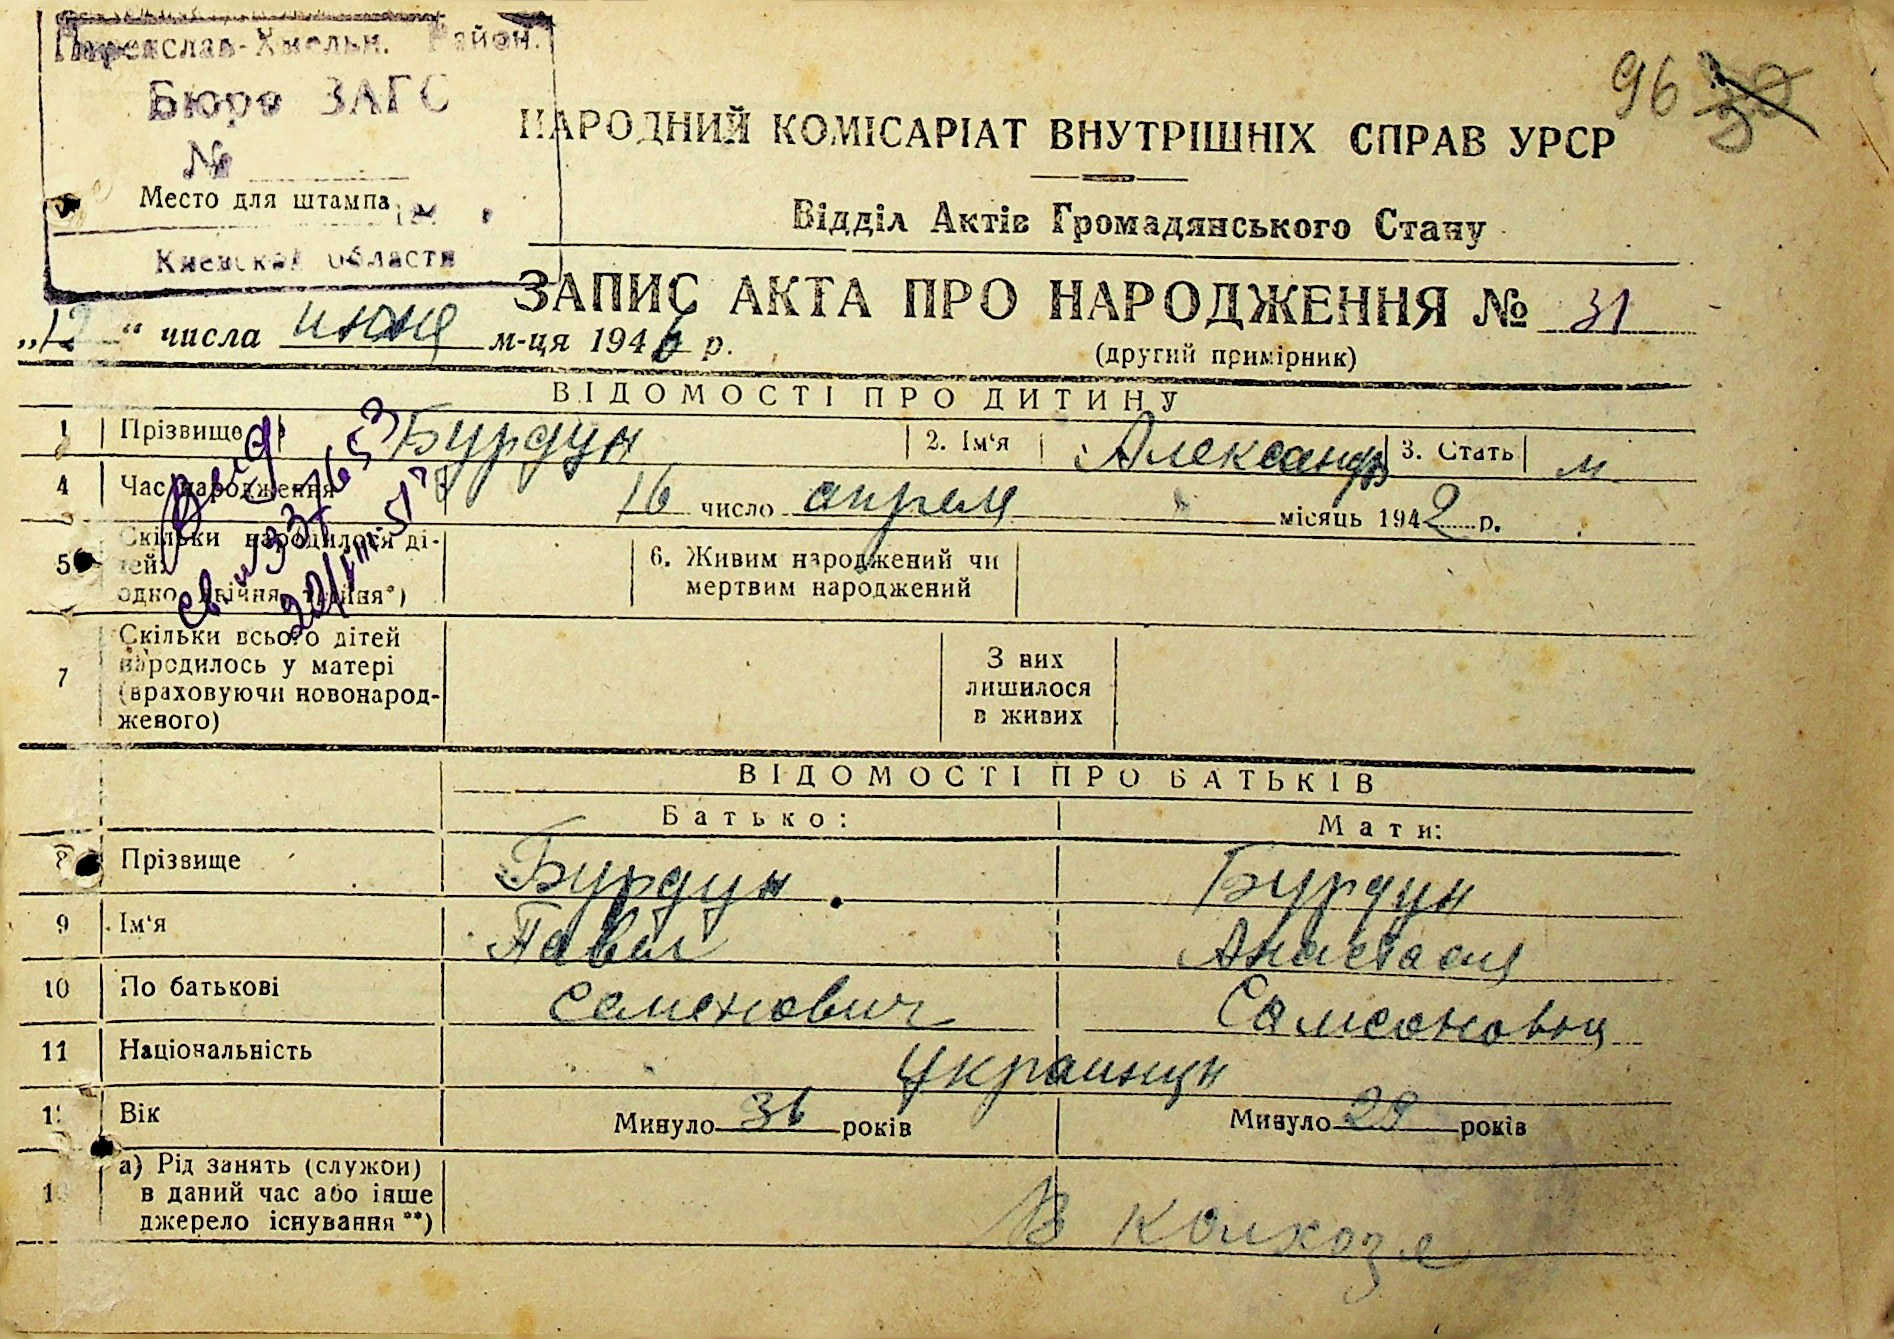 Переяслав-Хмельн. Район.
Бюро ЗАГС
№
Место для штампа
Киевской области
96
30
НАРОДНИЙ КОМІСАРІАТ ВНУТРІШНІХ СПРАВ УРСР
Відділ Актів Громадянського Стану
ЗАПИС АКТА ПРО НАРОДЖЕННЯ № 31
„12“ числа июня м-ця 1946 р.
(другий примірник)
ВІДОМОСТІ ПРО ДИТИНУ
1 Прізвище Бурдун 2. Ім‘я Александр 3. Стать м
4 Час народження 16 число апреля місяць 1942 р.
5 Скільки народилося дітей: одно, двійня, трійня*)
6. Живим народжений чи мертвим народжений
7 Скільки всього дітей
народилось у матері
(враховуючи новонарод-
женого)
З них
лишилося
в живих
ВІДОМОСТІ ПРО БАТЬКІВ
Батько: Мати:
8 Прізвище Бурдун Бурдун
9 Ім‘я Павел Анастасия
10 По батькові Семенович Самсоновна
11 Національність Украинцы
12 Вік Минуло 36 років Минуло 29 років
а) Рід занять (служби)
в даний час або інше
джерело існування **)
В колхозе